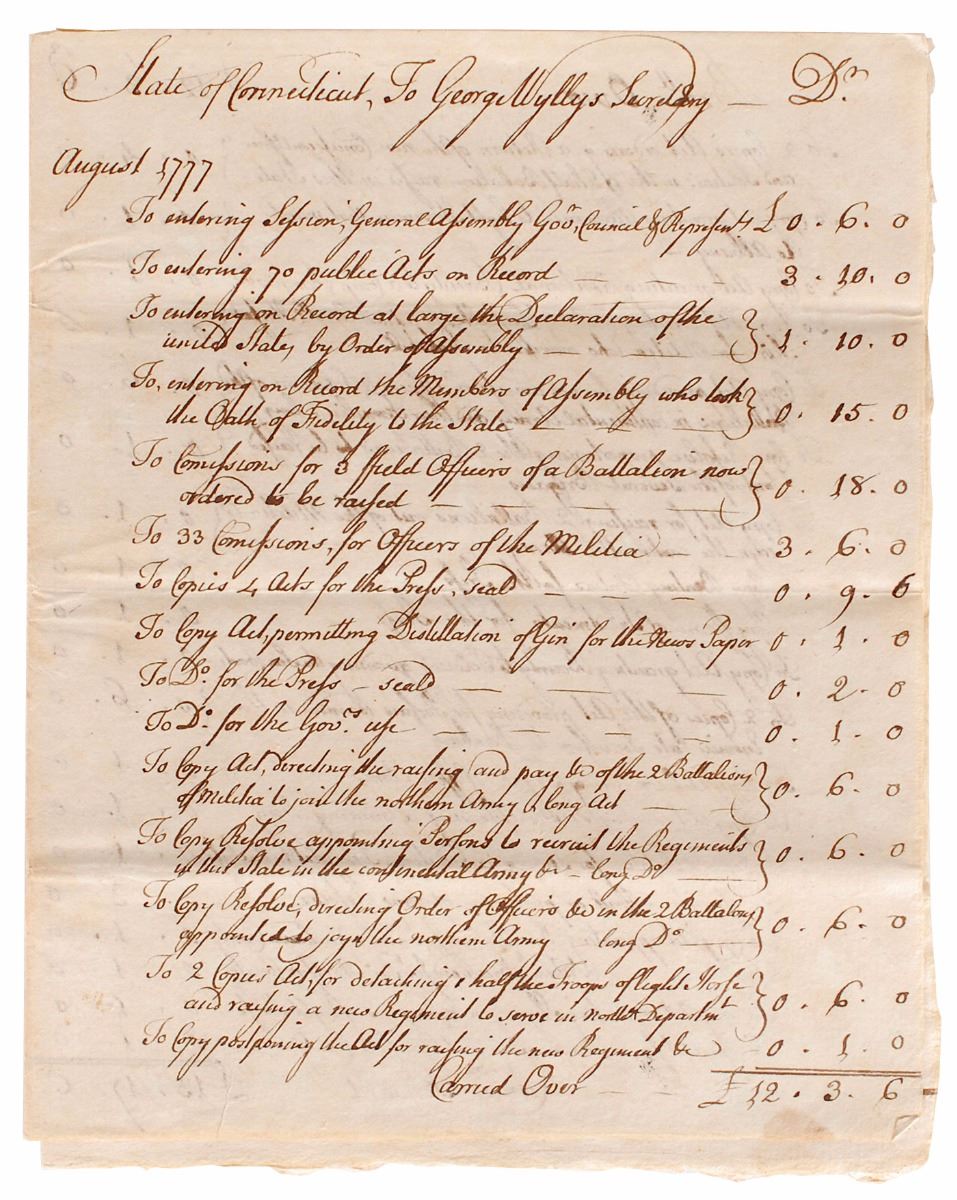 State of Connecticut, To George Wyllys Secretary — Dr.
August 1777
To entering Session, General Assembly Govr, Council & Represents £ 0 . 6 . 0
To entering 70 public Acts on Record — — — 3 . 10 . 0
To entering on Record at large the Declaration of the
united States by Order of Assembly — — — } 1 . 10 . 0
To, entering on Record the Members of Assembly who took
the Oath of Fidelity to the State — — — } 0 . 15 . 0
To Comissions for 3 ffield Officers of a Battaleon now
ordered to be raised — — — } 0 . 18 . 0
To 33 Comissions, for Officers of the Militia — 3 . 6 . 0
To Copies 4 Acts for the Press, seald — — — 0 . 9 . 6
To Copy Act, permitting Distillation of Gin for the News Paper 0 . 1 . 0
To Do. for the Press — seald — — — 0 . 2 . 0
To Do. for the Govrs. use — — — — 0 . 1 . 0
To Copy Act, directing the raising and pay &c of the 2 Battalions
of Militia to join the northern Army, long Act — } 0 . 6 . 0
To Copy Resolve appointing Persons to recruit the Regiments
in this State in the continental Army &c — long Do — } 0 . 6 . 0
To Copy Resolve, directing Order of Officers &c in the 2 Battalions
appointed to joyn the northern Army long Do — } 0 . 6 . 0
To 2 Copies Act, for detaching 1 half the Troops of light Horse
and raising a new Regiment to serve in North Departmt } 0 . 6 . 0
To Copy postponing the Act for raising the new Regiment &c — 0 . 1 . 0
Carried Over — £ 12 . 3 . 6